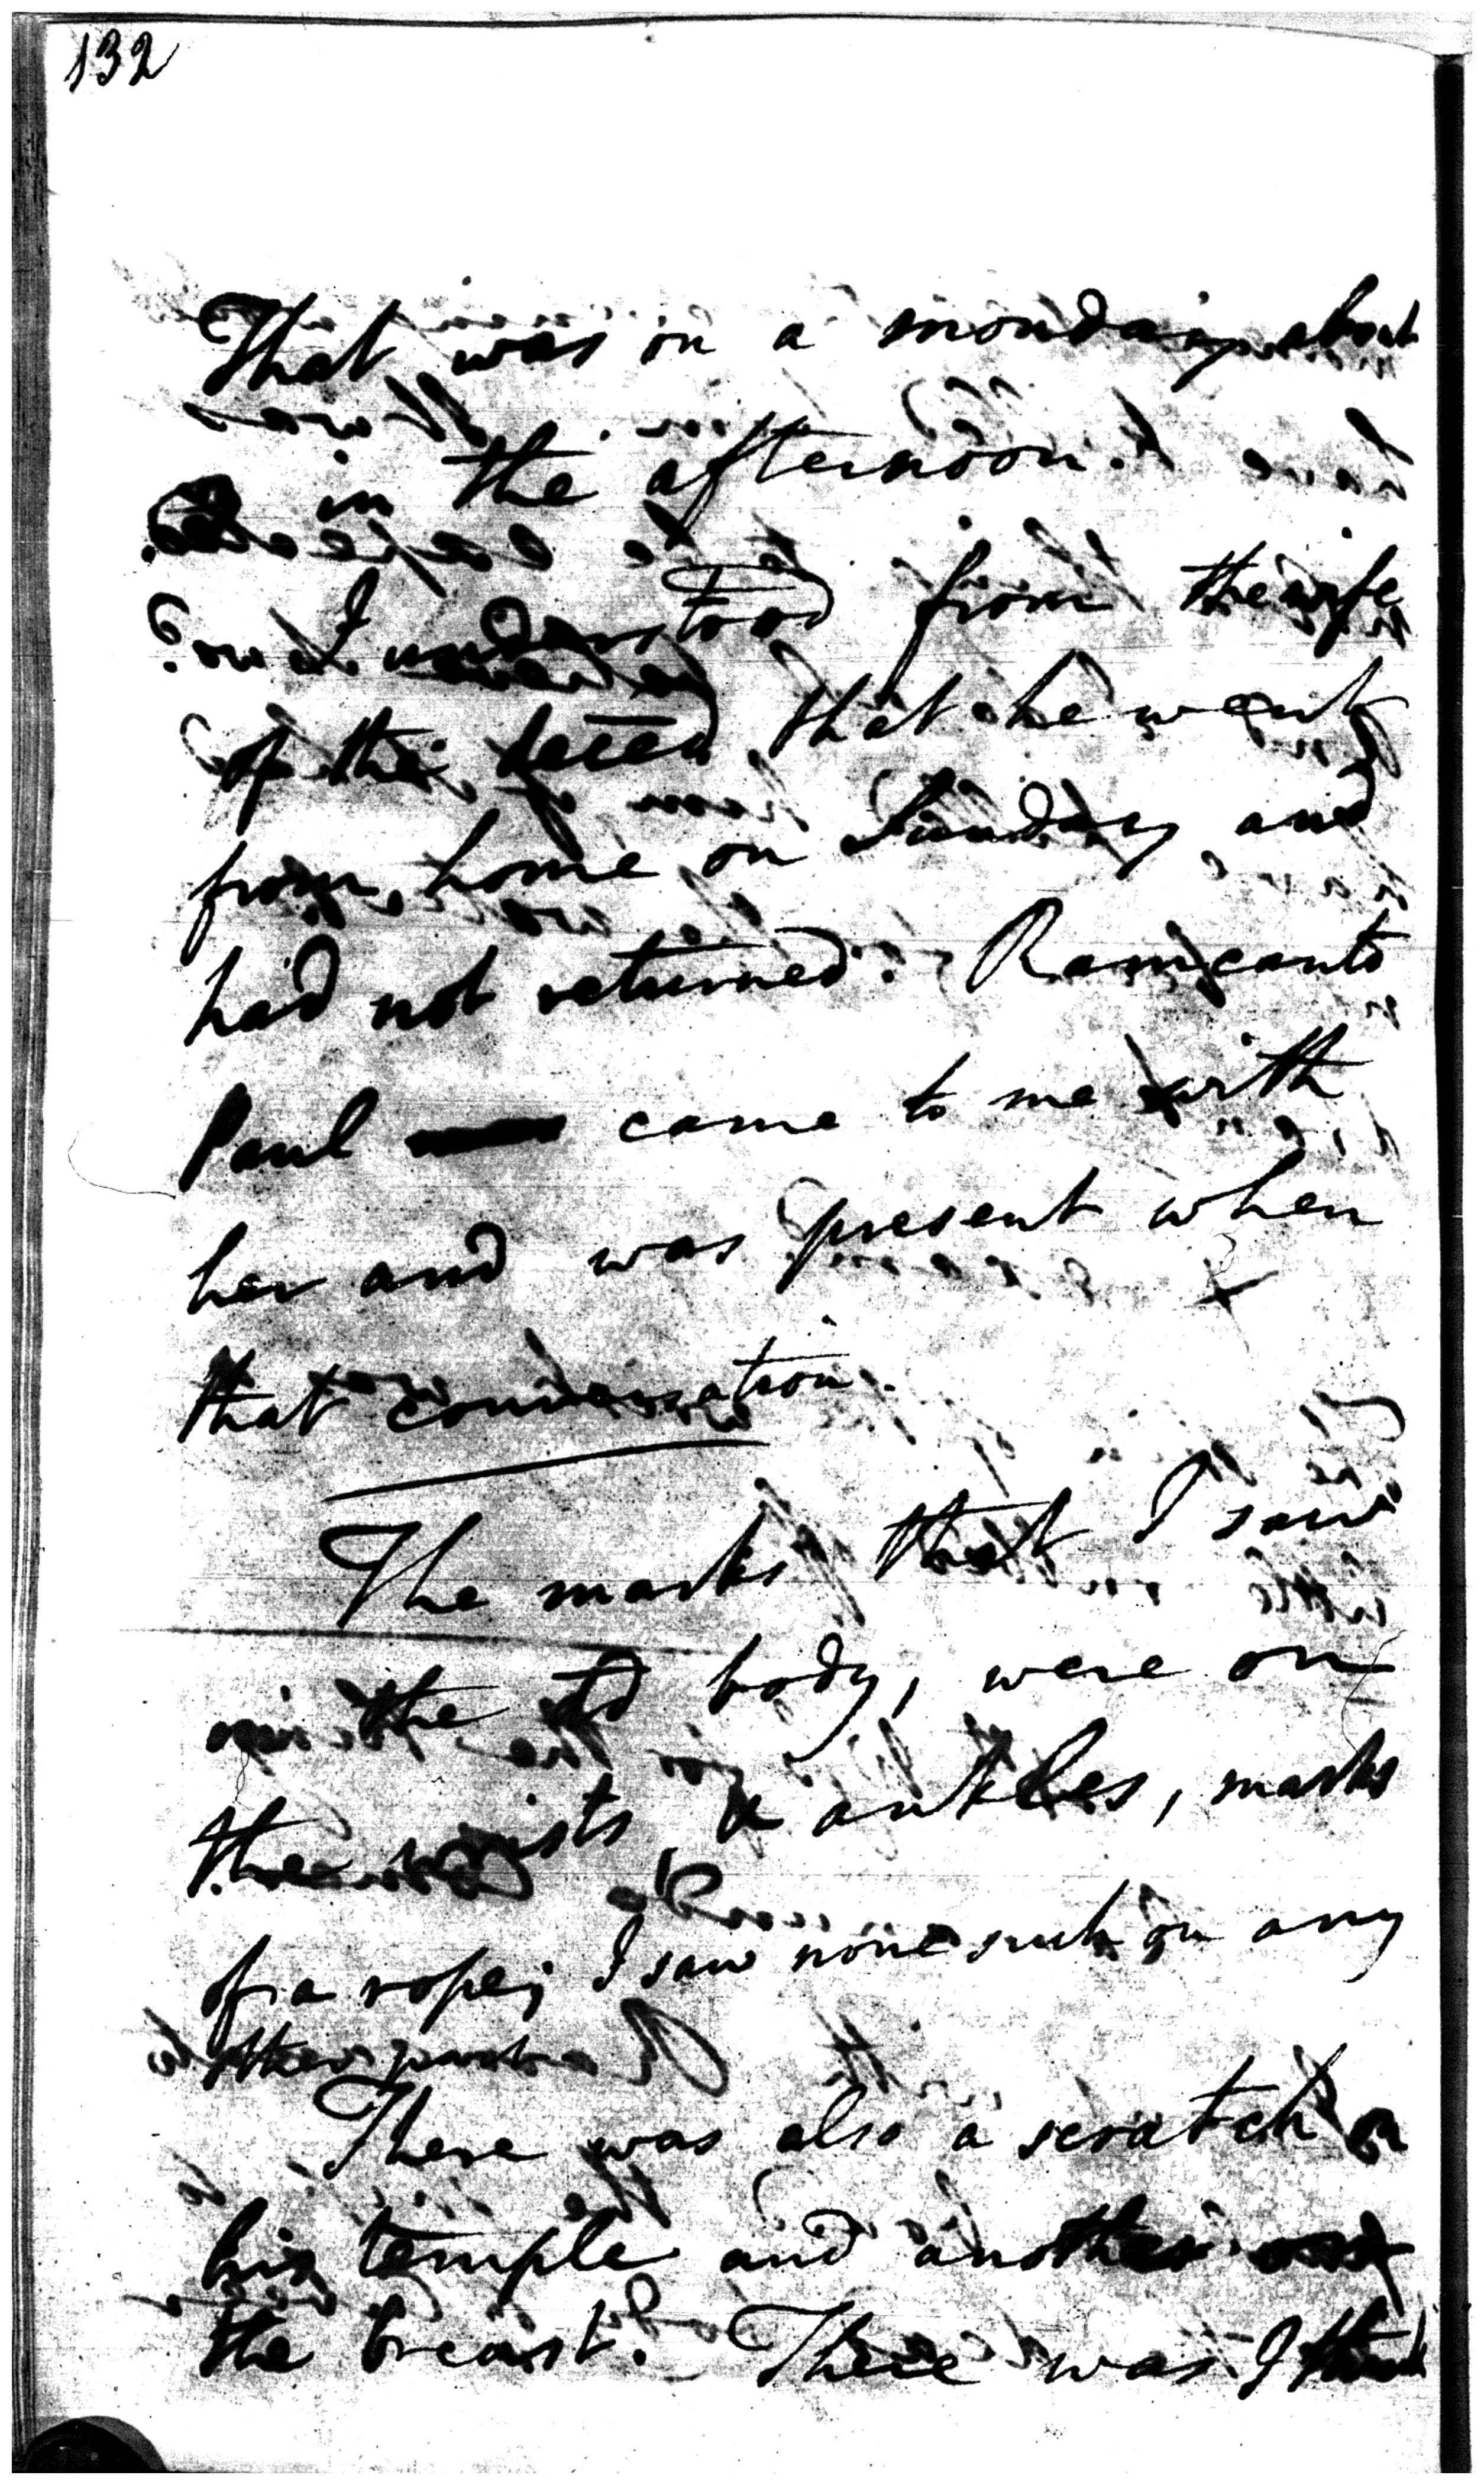 132
That was on a monday about
in the afternoon.
I understood from the wife
of the deced that he went
from home on Sunday and
had not returned. Ramcanto
Paul came to me with
her and was present when
that conversation.
The marks that I saw
on the sd body, were on
the wrists & ankles, marks
of a rope; I saw none such on any
other part
There was also a scratch on
his temple and another on
the breast. There was I think